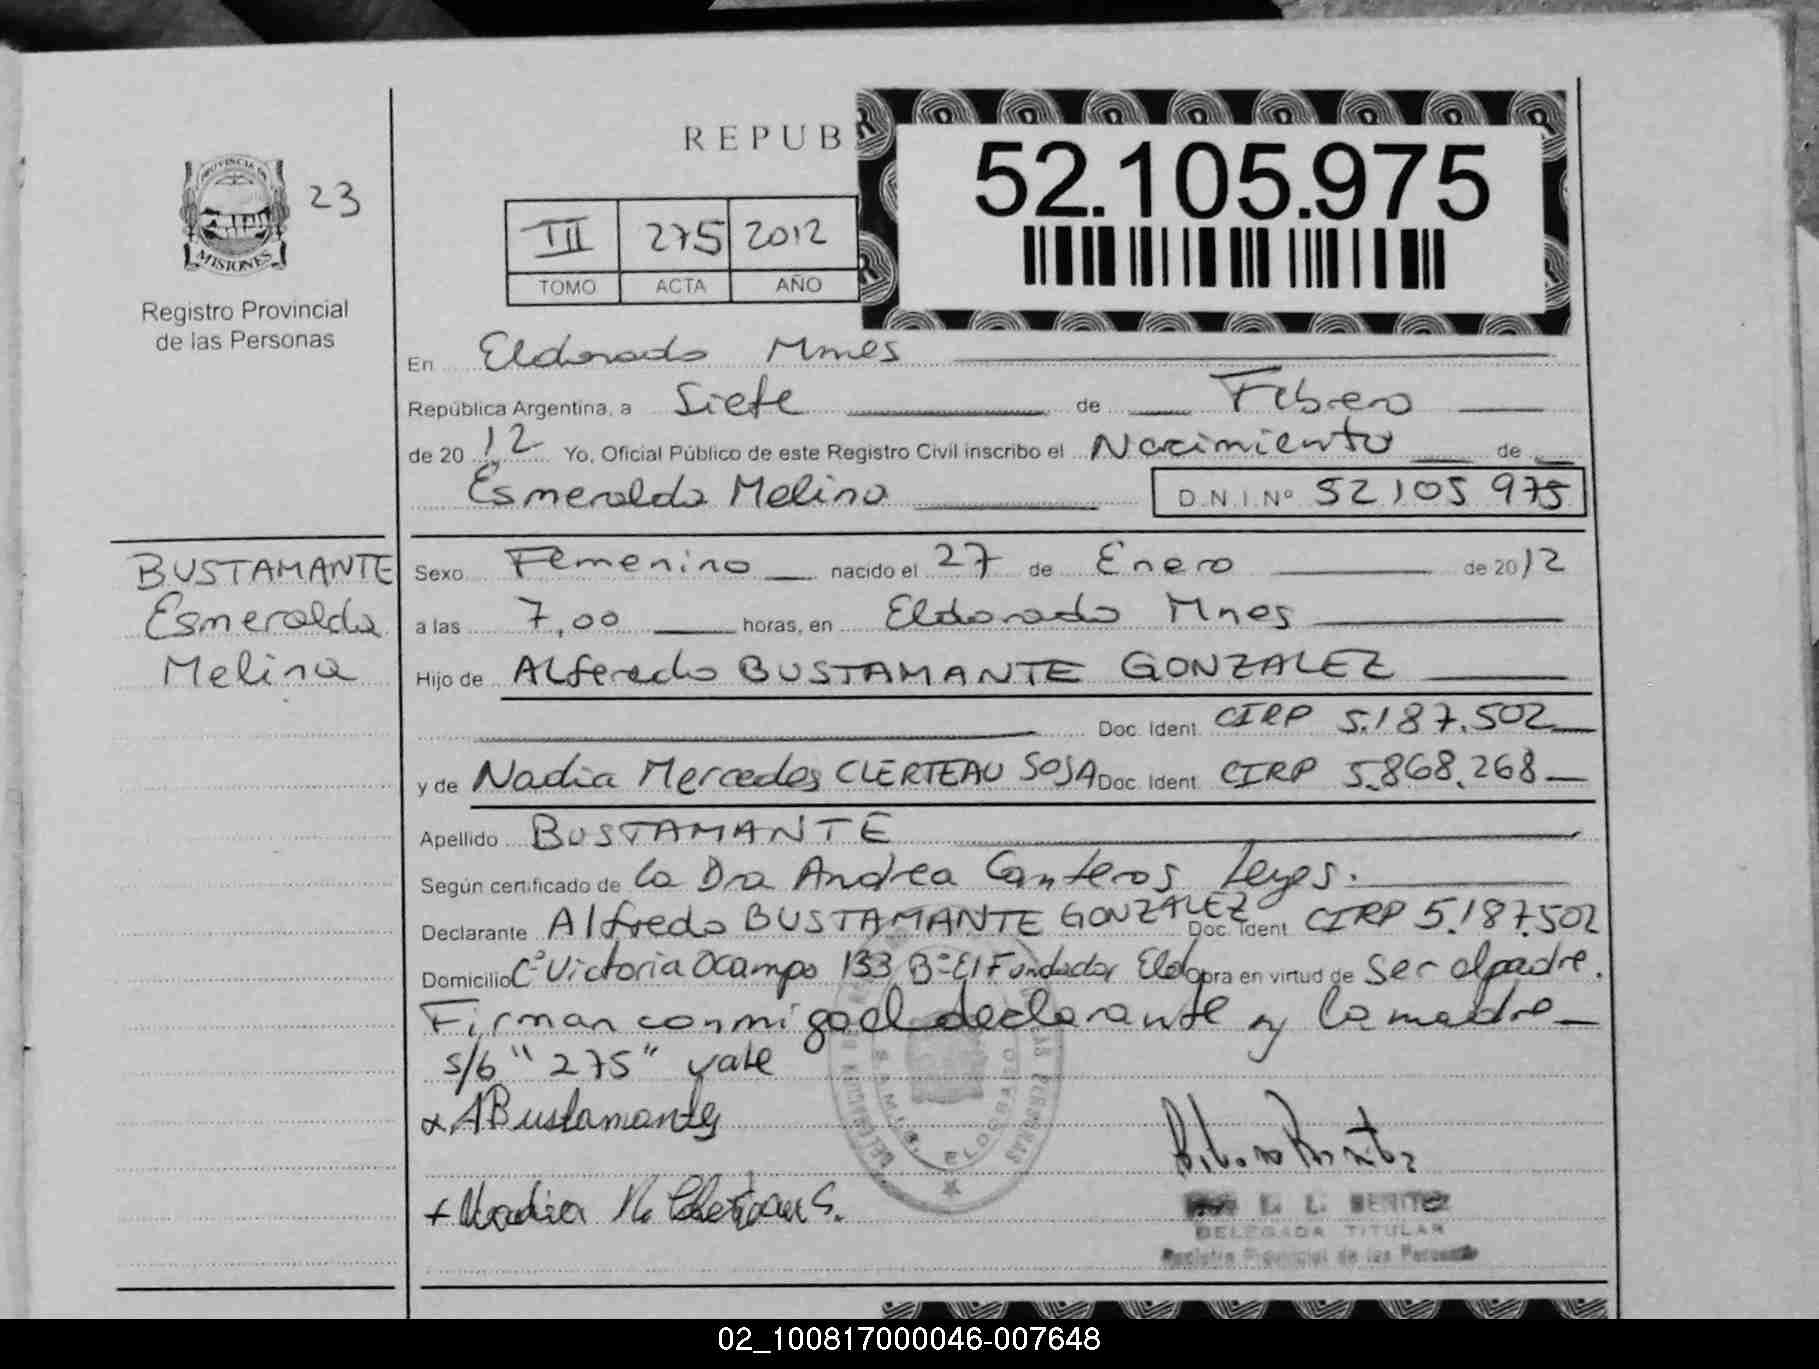 REPUB
52.105.975
PROVINCIA DE
MISIONES
23
Registro Provincial
de las Personas
III 275 2012
TOMO ACTA AÑO
En Eldorado Mnes
República Argentina, a Siete de Febrero
de 2012 Yo, Oficial Público de este Registro Civil inscribo el Nacimiento de
Esmeralda Melina D.N.I.Nº 52105975
BUSTAMANTE
Esmeralda
Melina
Sexo Femenino nacido el 27 de Enero de 2012
a las 7,00 horas, en Eldorado Mnes
Hijo de Alferedo BUSTAMANTE GONZALEZ
Doc. Ident. CIRP 5.187.502
y de Nadia Mercedes CLERTEAU SOSA Doc. Ident. CIRP 5.868.268
Apellido BUSTAMANTE
Según certificado de La Dra Andrea Canteros Leyes.
Declarante Alfredo BUSTAMANTE GONZALEZ Doc. Ident. CIRP 5.187.502
Domicilio Cº Victoria Ocampo 133 Bº El Fundador Eldo obra en virtud de ser el padre.
Firman conmigo el declarante y la madre
s/b "275" vale
x ABustamante
+ Nadia M. S.
L. L. BENITEZ
DELEGADA TITULAR
Registro Provincial de las Personas
ELDORADO
02_100817000046-007648